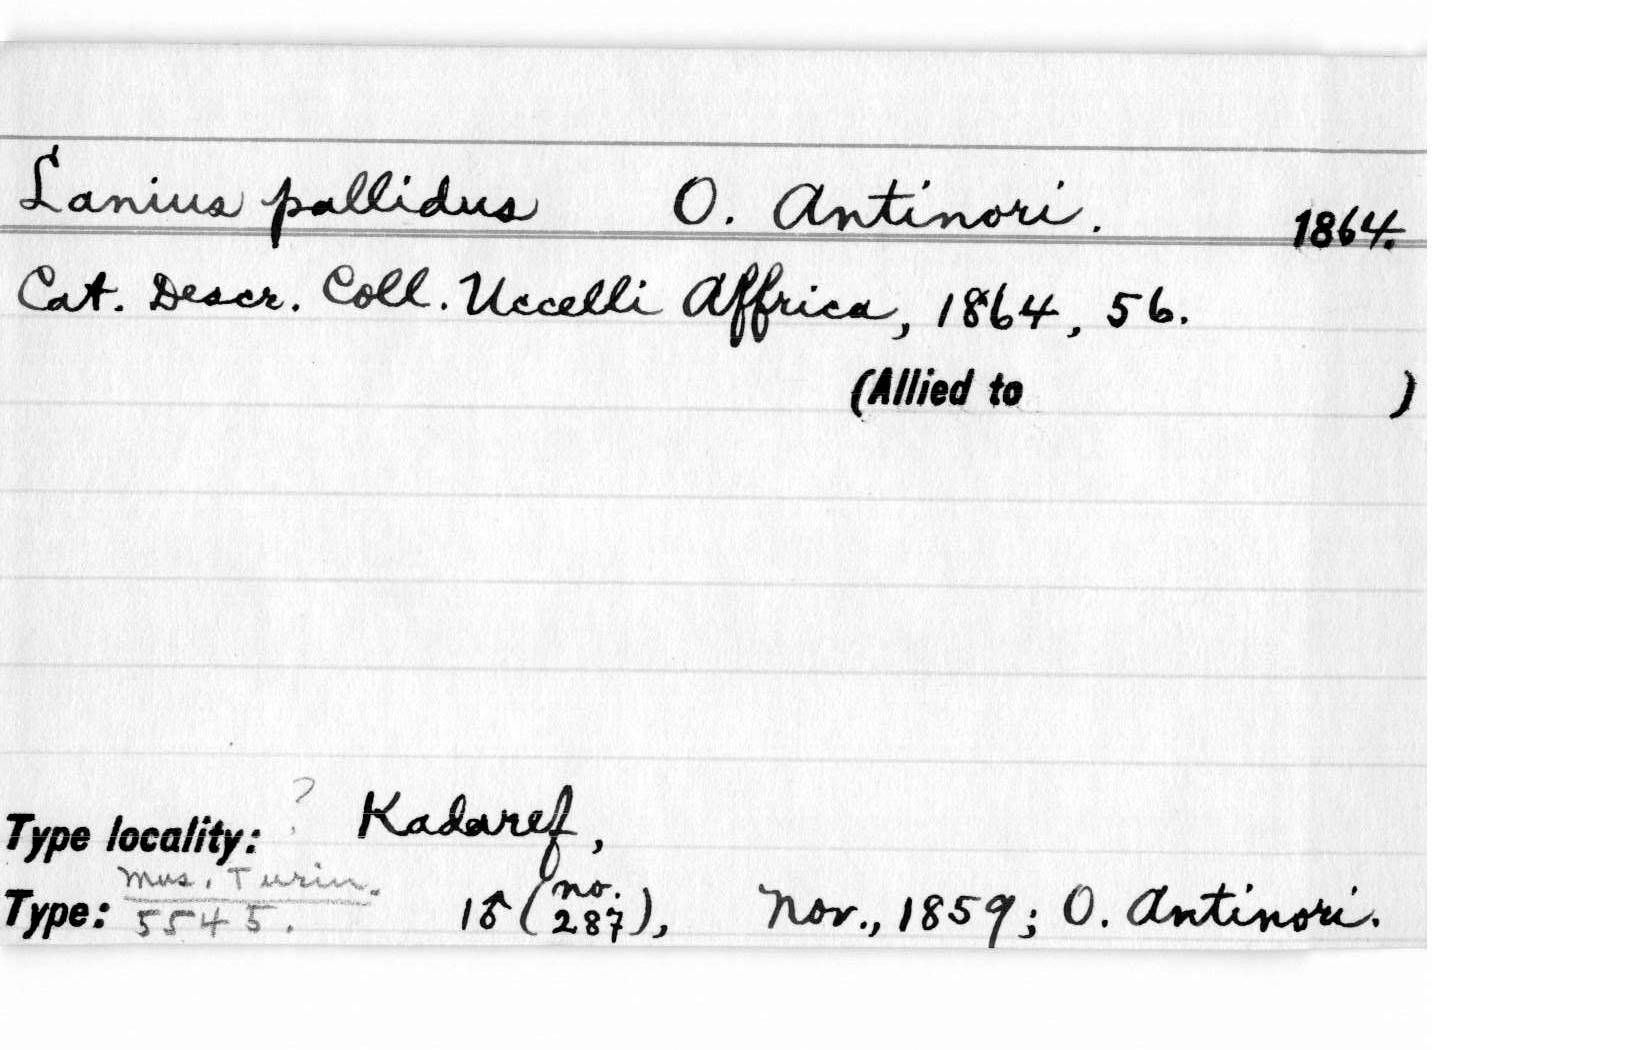 Lanius pallidus O. Antinori. 1864.
Cat. Descr. Coll. Uccelli Affrica, 1864, 56.
(Allied to )
?
Type locality: Kadaref,
Mus. Turin.
Type: 5545. 1♂ (no. 287), Nov., 1859; O. Antinori.